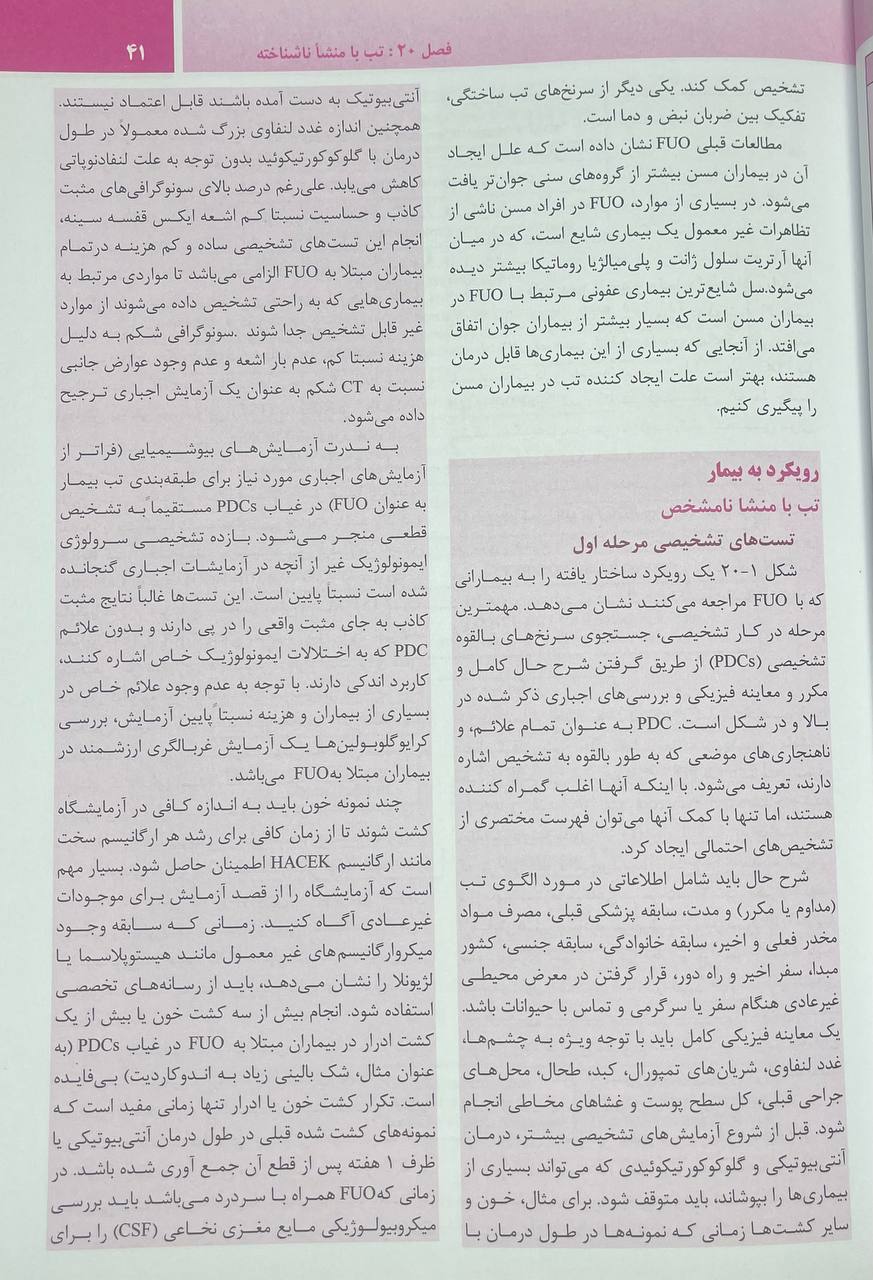 فصل ۲۰: تب با منشأ ناشناخته
۴۱
تشخیص کمک کند. یکی دیگر از سرنخ‌های تب ساختگی،
تفکیک بین ضربان نبض و دما است.
مطالعات قبلی FUO نشان داده است که علل ایجاد
آن در بیماران مسن بیشتر از گروه‌های سنی جوان‌تر یافت
می‌شود. در بسیاری از موارد، FUO در افراد مسن ناشی از
تظاهرات غیر معمول یک بیماری شایع است، که در میان
آنها آرتریت سلول ژانت و پلی‌میالژیا روماتیکا بیشتر دیده
می‌شود.سل شایع‌ترین بیماری عفونی مرتبط با FUO در
بیماران مسن است که بسیار بیشتر از بیماران جوان اتفاق
می‌افتد. از آنجایی که بسیاری از این بیماری‌ها قابل درمان
هستند، بهتر است علت ایجاد کننده تب در بیماران مسن
را پیگیری کنیم.
رویکرد به بیمار
تب با منشا نامشخص
تست‌های تشخیصی مرحله اول
شکل ۱-۲۰ یک رویکرد ساختار یافته را به بیمارانی
که با FUO مراجعه می‌کنند نشان می‌دهد. مهمترین
مرحله در کار تشخیصی، جستجوی سرنخ‌های بالقوه
تشخیصی (PDCs) از طریق گرفتن شرح حال کامل و
مکرر و معاینه فیزیکی و بررسی‌های اجباری ذکر شده در
بالا و در شکل است. PDC به عنوان تمام علائم، و
ناهنجاری‌های موضعی که به طور بالقوه به تشخیص اشاره
دارند، تعریف می‌شود. با اینکه آنها اغلب گمراه کننده
هستند، اما تنها با کمک آنها می‌توان فهرست مختصری از
تشخیص‌های احتمالی ایجاد کرد.
شرح حال باید شامل اطلاعاتی در مورد الگوی تب
(مداوم یا مکرر) و مدت، سابقه پزشکی قبلی، مصرف مواد
مخدر فعلی و اخیر، سابقه خانوادگی، سابقه جنسی، کشور
مبدا، سفر اخیر و راه دور، قرار گرفتن در معرض محیطی
غیرعادی هنگام سفر یا سرگرمی و تماس با حیوانات باشد.
یک معاینه فیزیکی کامل باید با توجه ویژه به چشم‌ها،
غدد لنفاوی، شریان‌های تمپورال، کبد، طحال، محل‌های
جراحی قبلی، کل سطح پوست و غشاهای مخاطی انجام
شود. قبل از شروع آزمایش‌های تشخیصی بیشتر، درمان
آنتی‌بیوتیکی و گلوکوکورتیکوئیدی که می‌تواند بسیاری از
بیماری‌ها را بپوشاند، باید متوقف شود. برای مثال، خون و
سایر کشت‌ها زمانی که نمونه‌ها در طول درمان با
آنتی‌بیوتیک به دست آمده باشند قابل اعتماد نیستند.
همچنین اندازه غدد لنفاوی بزرگ شده معمولاً در طول
درمان با گلوکوکورتیکوئید بدون توجه به علت لنفادنوپاتی
کاهش می‌یابد. علی‌رغم درصد بالای سونوگرافی‌های مثبت
کاذب و حساسیت نسبتا کم اشعه ایکس قفسه سینه،
انجام این تست‌های تشخیصی ساده و کم هزینه درتمام
بیماران مبتلا به FUO الزامی می‌باشد تا مواردی مرتبط به
بیماری‌هایی که به راحتی تشخیص داده می‌شوند از موارد
غیر قابل تشخیص جدا شوند .سونوگرافی شکم به دلیل
هزینه نسبتا کم، عدم بار اشعه و عدم وجود عوارض جانبی
نسبت به CT شکم به عنوان یک آزمایش اجباری ترجیح
داده می‌شود.
به ندرت آزمایش‌های بیوشیمیایی (فراتر از
آزمایش‌های اجباری مورد نیاز برای طبقه‌بندی تب بیمار
به عنوان FUO) در غیاب PDCs مستقیماً به تشخیص
قطعی منجر می‌شود. بازده تشخیصی سرولوژی
ایمونولوژیک غیر از آنچه در آزمایشات اجباری گنجانده
شده است نسبتاً پایین است. این تست‌ها غالباً نتایج مثبت
کاذب به جای مثبت واقعی را در پی دارند و بدون علائم
PDC که به اختلالات ایمونولوژیک خاص اشاره کنند،
کاربرد اندکی دارند. با توجه به عدم وجود علائم خاص در
بسیاری از بیماران و هزینه نسبتاً پایین آزمایش، بررسی
کرایوگلوبولین‌ها یک آزمایش غربالگری ارزشمند در
بیماران مبتلا بهFUO می‌باشد.
چند نمونه خون باید به اندازه کافی در آزمایشگاه
کشت شوند تا از زمان کافی برای رشد هر ارگانیسم سخت
مانند ارگانیسم HACEK اطمینان حاصل شود. بسیار مهم
است که آزمایشگاه را از قصد آزمایش برای موجودات
غیرعادی آگاه کنید. زمانی که سابقه وجود
میکروارگانیسم‌های غیر معمول مانند هیستوپلاسما یا
لژیونلا را نشان می‌دهد، باید از رسانه‌های تخصصی
استفاده شود. انجام بیش از سه کشت خون یا بیش از یک
کشت ادرار در بیماران مبتلا به FUO در غیاب PDCs (به
عنوان مثال، شک بالینی زیاد به اندوکاردیت) بی‌فایده
است. تکرار کشت خون یا ادرار تنها زمانی مفید است که
نمونه‌های کشت شده قبلی در طول درمان آنتی‌بیوتیکی یا
ظرف ۱ هفته پس از قطع آن جمع آوری شده باشد. در
زمانی کهFUO همراه با سردرد می‌باشد باید بررسی
میکروبیولوژیکی مایع مغزی نخاعی (CSF) را برای